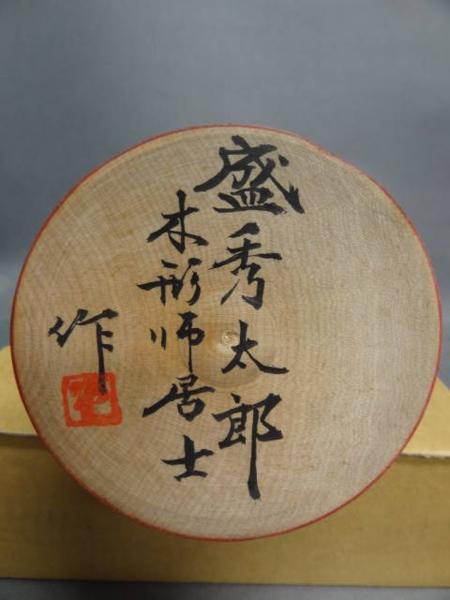 盛秀太郎
木形师居士
作